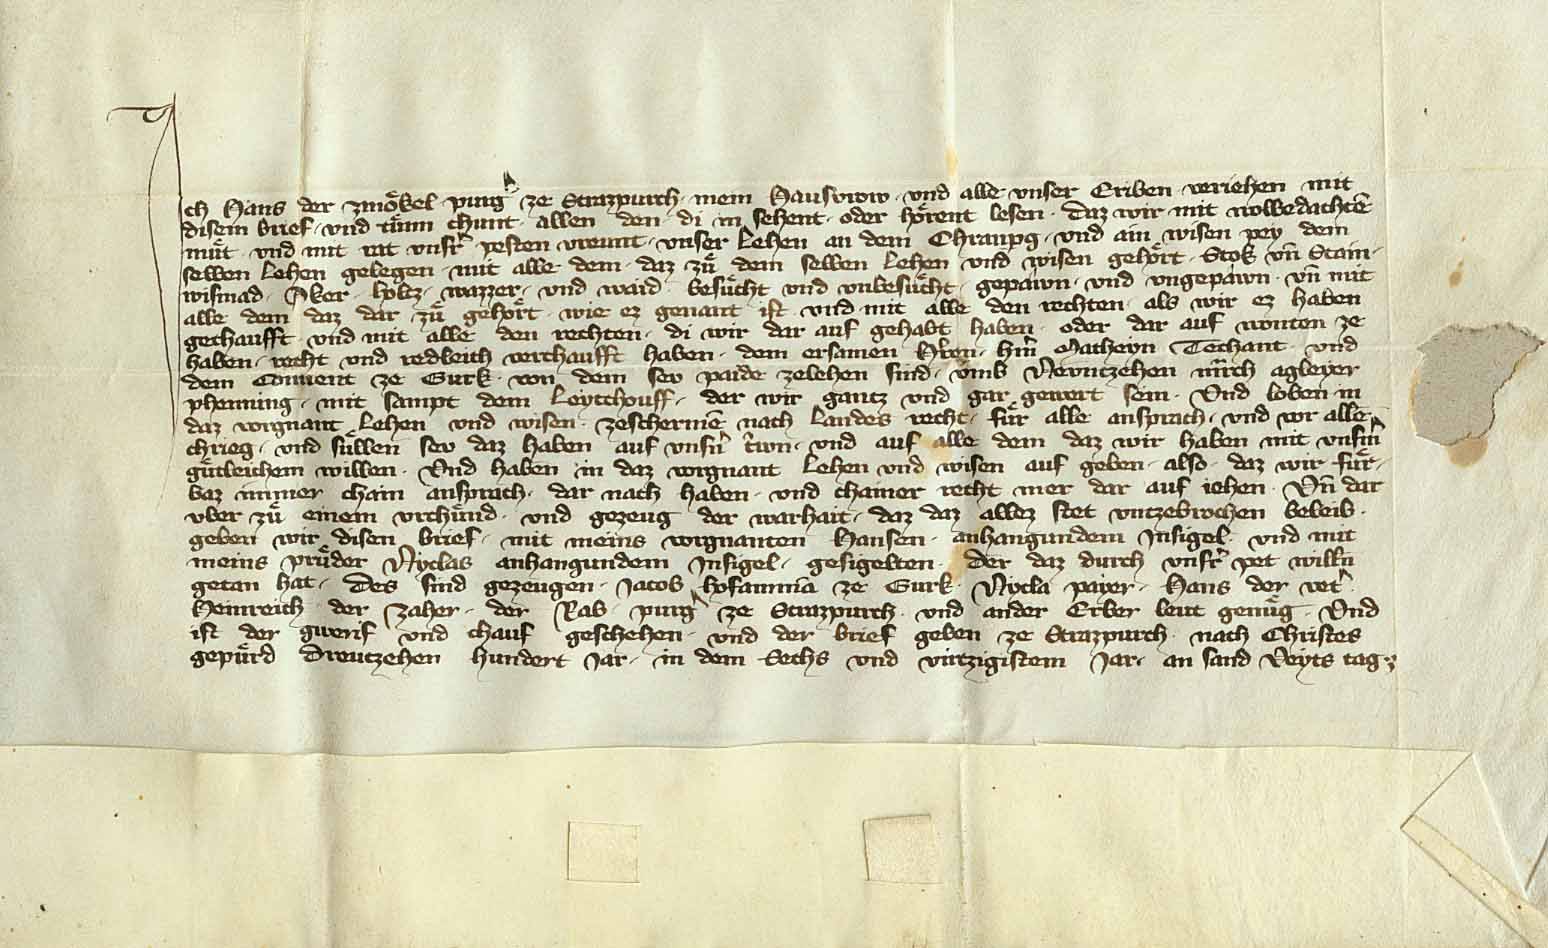 Ich Hans der zmoͤkel purgˀ ze Strazpurch · mein Hausvrow · vnd alle vnser Eriben · veriehen mit
disem brief · vnd tuͤnn chunt · allen den · di in sehent · oder hoͤrent lesen · Daz wir mit wolbedachtē
muͤt · vnd mit rat vnsrˀ pesten vreunt · vnser Lehen an dem Chranpg · vnd ain wisen pey dem
selben Lehen gelegen · mit alle dem · daz zuͤ dem selben Lehen vnd wisen gehoͤrt · Stok vn̄ Stain ·
wismad · Aker · holtz · wazzer · vnd waid · besuͤcht vnd vnbesuͤcht · gepawn · vnd vngepawn · vn̄ mit
alle dem daz dar zuͤ gehoͤrt · wie ez genant ist · vnd mit alle den rechten · als wir ez haben
gechaufft · vnd mit alle den rechten · di wir dar auf gehabt haben · oder dar auf wonten ze
haben · recht vnd redleich verchaufft haben · dem ersamen Hˀren · hˀrn Matheyn Techant · vnd
dem Conuent ze Gurk · von dem sev paide zelehen sind · vmb Nevntzehen mˀrch agleyer
phenning · mit sampt dem Leytchouff · der wir gantz vnd gar gewert sein · Vnd loben in
daz vorgnant Lehen vnd wisen · zeschermē nach Landes recht · fuͤr alle ansprach · vnd vor allē
chrieg · vnd suͤllen sev daz haben auf vnsˀn tˀwn · vnd auf alle dem daz wir haben mit vnsˀm
guͤtleichem willen · Vnd haben in daz vorgnant Lehen vnd wisen auf geben · also · daz wir fuͤr ·
baz immer chain ansprach · dar nach haben · vnd chainer recht mer dar auf iehen · Vn̄ dar
vber zuͤ einem vrchuͤnd · vnd gezeug der warhait · daz daz allez stet vntzebrochen beleib ·
geben wir disen brief · mit meins vorgnanten Hansen · anhangundem Insigel · vnd mit
meins pruͤder Nyclas anhangundem Insigel · gesigelten · Der daz durch vnsrˀ pet willˀn
getan hat · Des sind gezeugen · Jacob hofamma ze Gurk · Nycla payer · Hans der vetˀ
Heinreich der zaher · der Rab · purgˀ ze Strazpurch · vnd ander Erber leut genuͤg · Vnd
ist der gwerif vnd chauf geschehen · vnd der brief geben ze Strazpurch · nach Christes
gepuͤrd Dreutzehen hundert Jar · in dem Sechs vnd virtzigistem Jar · an sand Veyts tag ·